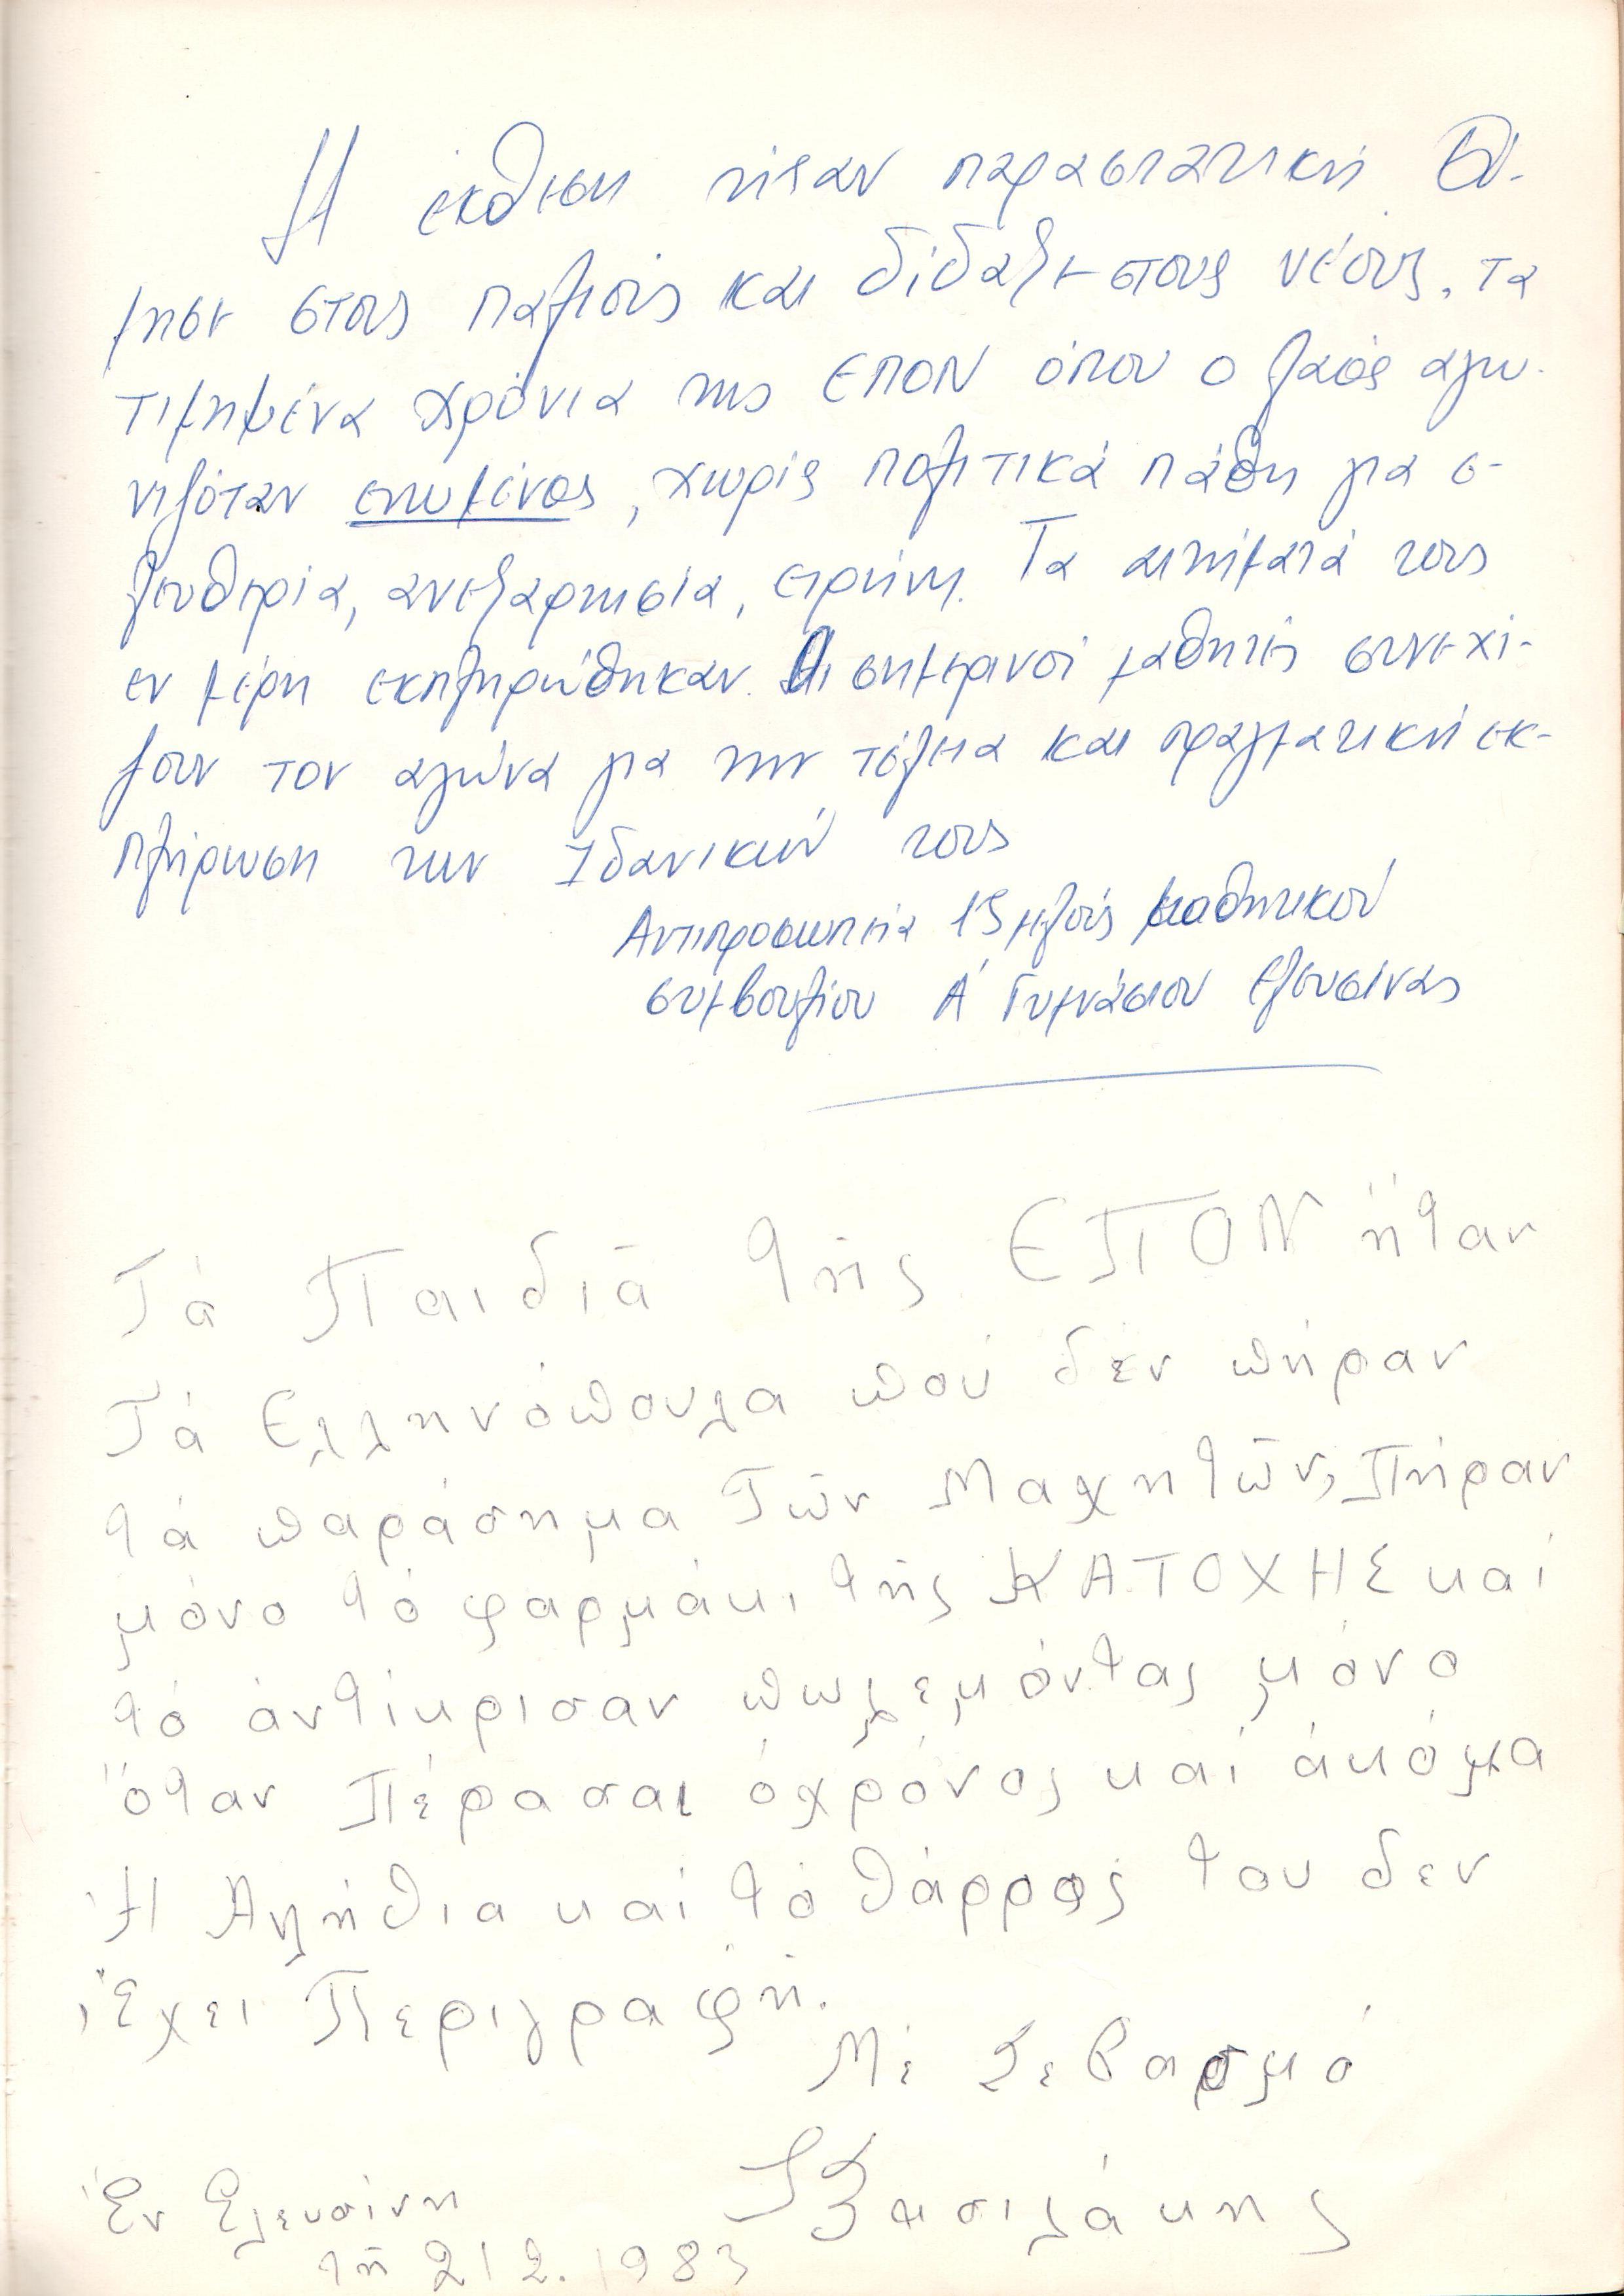 Η έκθεση ήταν παραστατική Θύ-
μησε στους παλιούς και δίδαξε στους νέους, τα
τιμημένα χρόνια της ΕΠΟΝ όπου ο λαός αγω-
νιζόταν ενωμένος, χωρίς πολιτικά πάθη για ε-
λευθερία, ανεξαρτησία, ειρήνη. Τα αιτήματά τους
εν μέρη εκπληρώθηκαν. Οι σημερινοί μαθητές συνεχί-
ζουν τον αγώνα για την τέλεια και πραγματική εκ-
πλήρωση των Ιδανικών τους
Αντιπροσωπεία 15μελούς μαθητικού
συμβουλίου Α΄ Γυμνάσιου Ελευσίνας
Τά Παιδιά τής ΕΠΟΝ ήταν
Τά Ελληνόπουλα πού δεν πήραν
τά παράσημα Τών Μαχητών, Πήραν
μόνο τό φαρμάκι τής ΚΑΤΟΧΗΣ καί
τό άντίκρισαν πωλεμόντας μόνο
όταν Πέρασαι ό χρόνος καί άκόμα
Ή Αλήθια καί τό θάρρος του δεν
Έχει Περιγραφή.
Μέ Σεβασμό
Βασιλάκης
Έν Ελευσίνη
τή 21 2. 1983